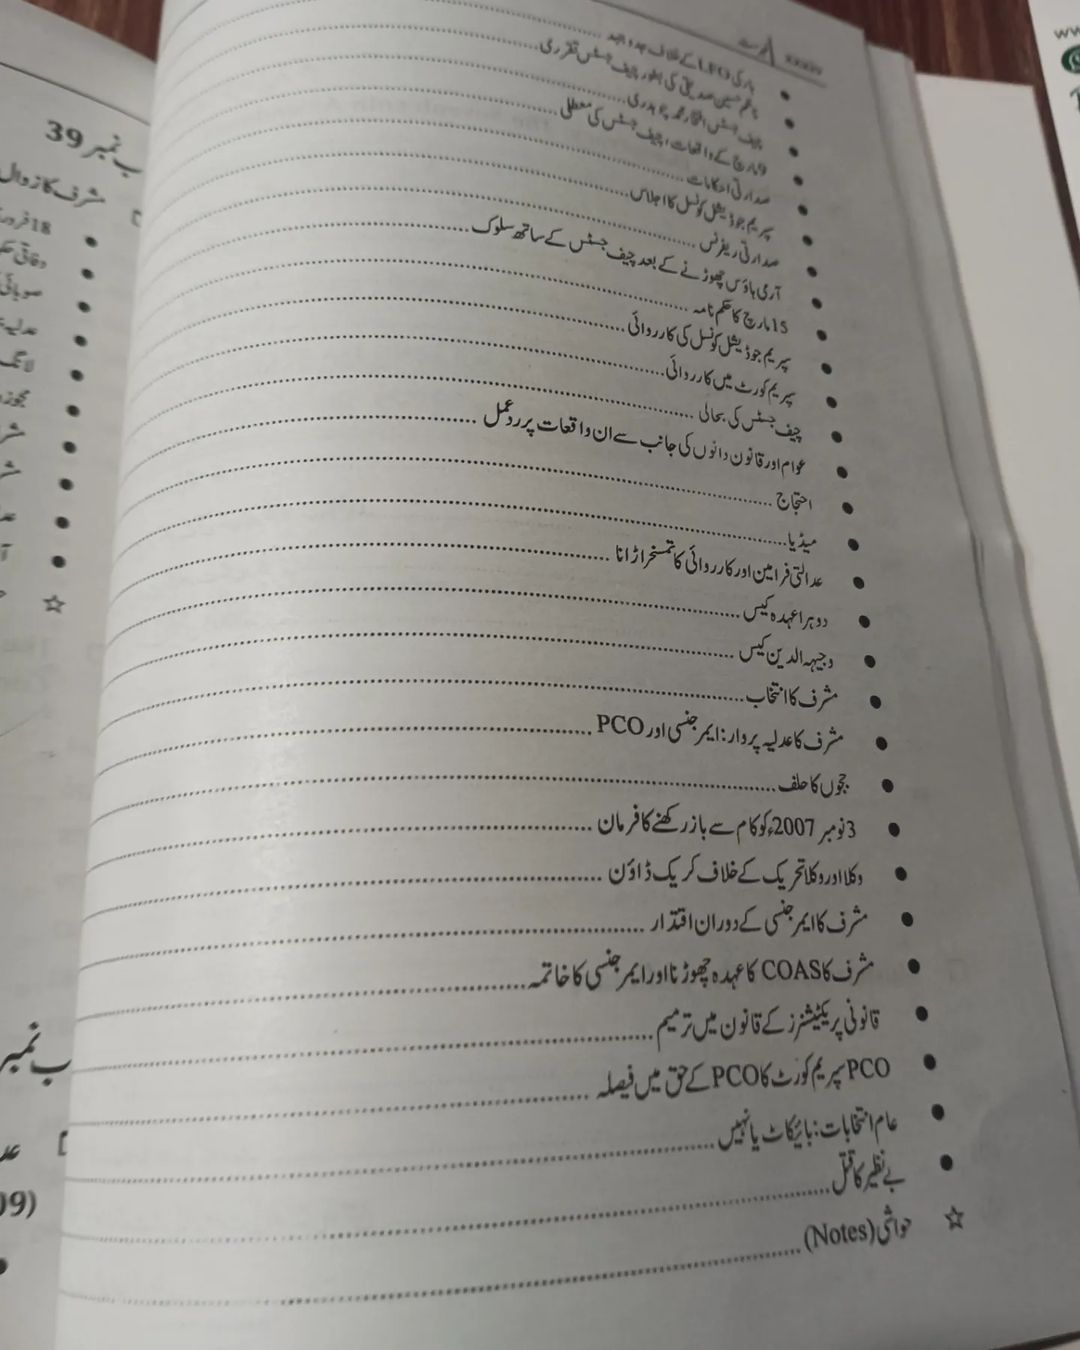 xxxiv
فہرست
بار کی LFO کے خلاف جدوجہد
ناظم حسین صدیقی کی بطور چیف جسٹس تقرری
چیف جسٹس افتخار محمد چوہدری
9 مارچ کے واقعات، چیف جسٹس کی معطلی
صدارتی احکامات
سپریم جوڈیشل کونسل کا اجلاس
صدارتی ریفرنس
آرمی ہاؤس چھوڑنے کے بعد چیف جسٹس کے ساتھ سلوک
15 مارچ کا حکم نامہ
سپریم جوڈیشل کونسل کی کارروائی
سپریم کورٹ میں کارروائی
چیف جسٹس کی بحالی
عوام اور قانون دانوں کی جانب سے ان واقعات پر ردعمل
احتجاج
میڈیا
عدالتی فرامین اور کارروائی کا تمسخر اڑانا
دوہرا عہدہ کیس
وجیہہ الدین کیس
مشرف کا انتخاب
مشرف کا عدلیہ پر وار: ایمرجنسی اور PCO
ججوں کا حلف
3 نومبر 2007ء کو کام سے باز رکھنے کا فرمان
وکلا اور وکلا تحریک کے خلاف کریک ڈاؤن
مشرف کا ایمرجنسی کے دوران اقتدار
مشرف کا COAS کا عہدہ چھوڑنا اور ایمرجنسی کا خاتمہ
قانونی پریکٹیشنرز کے قانون میں ترمیم
PCO سپریم کورٹ کا PCO کے حق میں فیصلہ
عام انتخابات: بائیکاٹ یا نہیں
بے نظیر کا قتل
حواشی (Notes)
ب نمبر 39
مشرف کا زوال
18 فرور
وفاقی حکو
صوبائی
عدلیہ
لانگ
مجوز
مشر
ب نمبر
09)